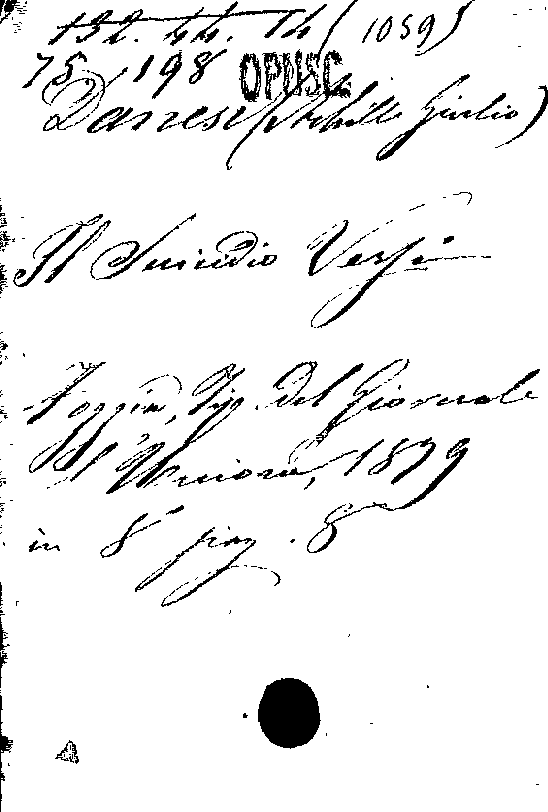 132. 44. 14 (1059)
75. 198 OPUSC.
Danesi (Achille Giulio)
Il Suicidio Versi
Foggia, Tip. del Giornale
Il Unione, 1879
in 8° pag. 8